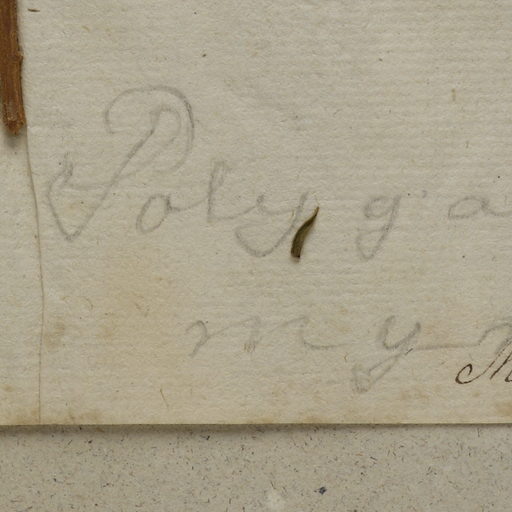 Polyga
my